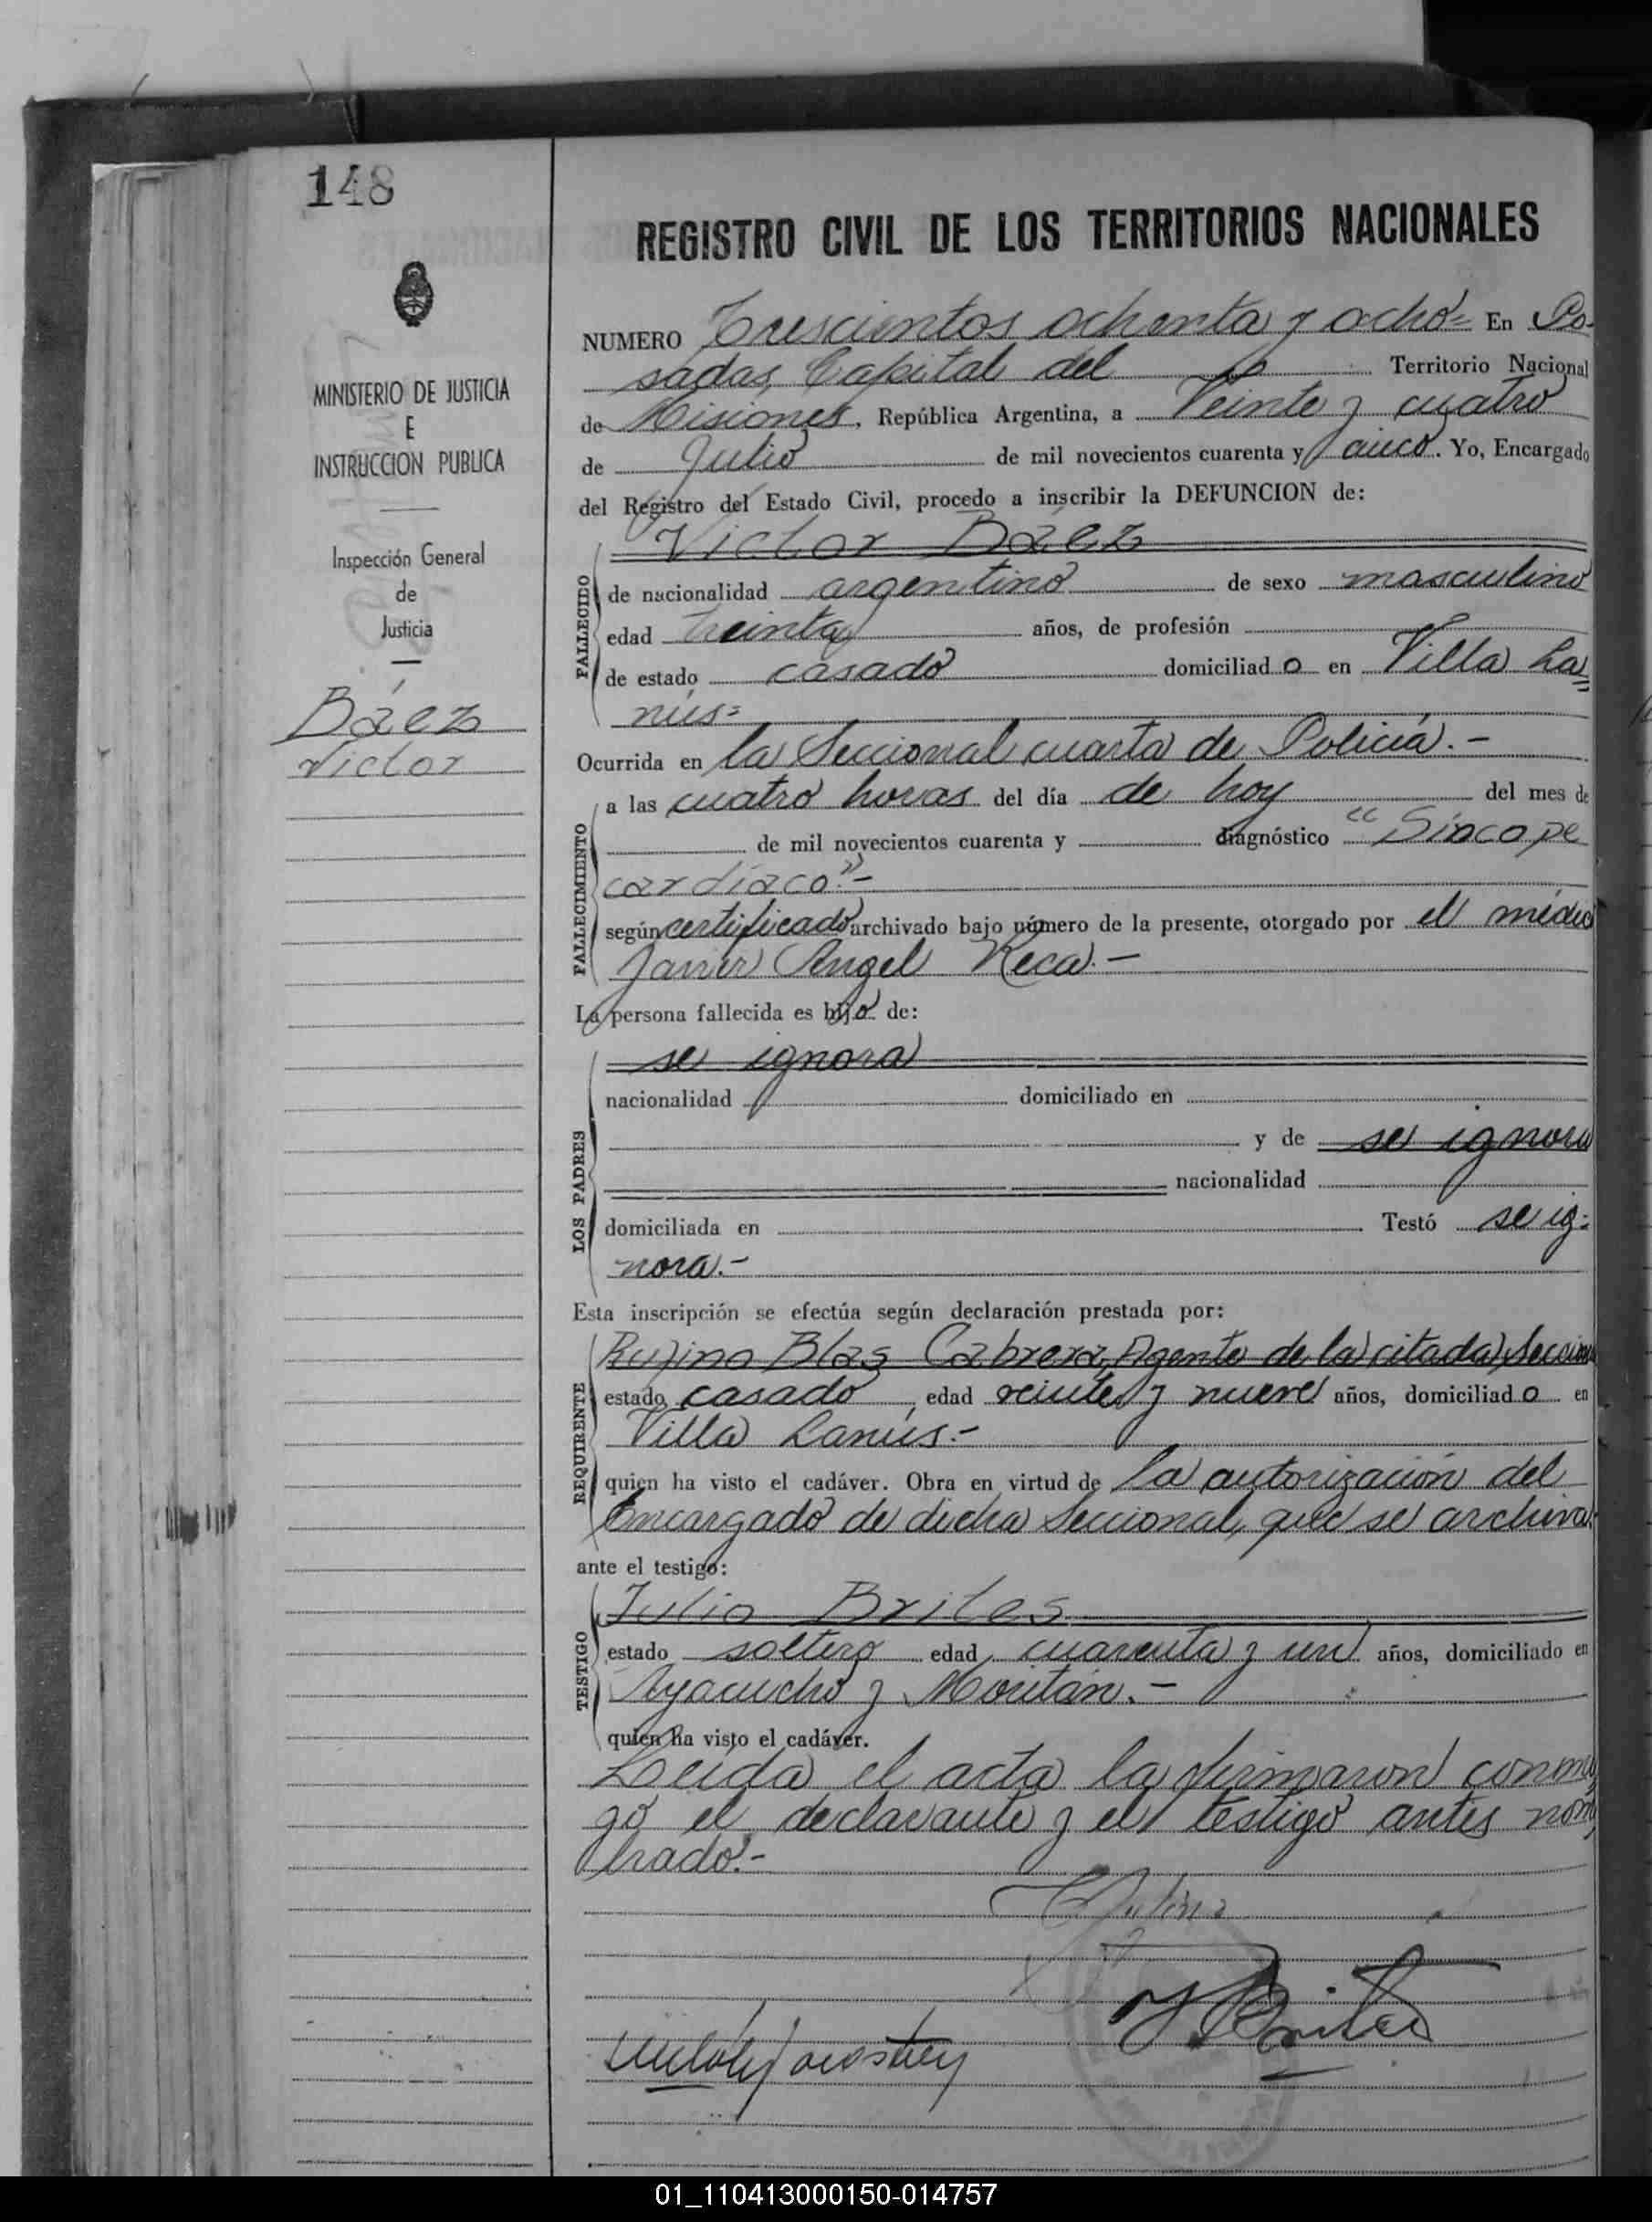 148
REGISTRO CIVIL DE LOS TERRITORIOS NACIONALES
NUMERO Trescientos ochenta y ocho= En Po-
sadas, Capital del Territorio Nacional
de Misiones, República Argentina, a Veinte y cuatro
de Julio de mil novecientos cuarenta y cinco. Yo, Encargado
del Registro del Estado Civil, procedo a inscribir la DEFUNCION de:
MINISTERIO DE JUSTICIA
E
INSTRUCCION PUBLICA
Inspección General
de
Justicia
Báez
Victor
FALLECIDO
Victor Báez
de nacionalidad argentino de sexo masculino
edad treinta años, de profesión
de estado casado domiciliado en Villa La=
nús=
Ocurrida en la Seccional cuarta de Policía.-
FALLECIMIENTO
a las cuatro horas del día de hoy del mes de
de mil novecientos cuarenta y diagnóstico "Síncope
cardíaco".-
según certificado archivado bajo número de la presente, otorgado por el médico
Javier Angel Reca.-
La persona fallecida es hijo de:
LOS PADRES
se ignora
nacionalidad domiciliado en
y de se ignora
nacionalidad
domiciliada en Testó se ig-
nora.-
Esta inscripción se efectúa según declaración prestada por:
REQUIRENTE
Rufino Blas Cabrera, Agente de la citada Seccional
estado casado, edad veinte y nueve años, domiciliado en
Villa Lanús.-
quien ha visto el cadáver. Obra en virtud de la autorización del
Encargado de dicha Seccional, que se archiva.
ante el testigo:
TESTIGO
Julio Brites
estado soltero edad cuarenta y un años, domiciliado en
Ayacucho y Moritán.-
quien ha visto el cadáver.
Leída el acta la firmaron conmi
go el declarante y el testigo antes nom
brado.-
J. Brites
01_110413000150-014757